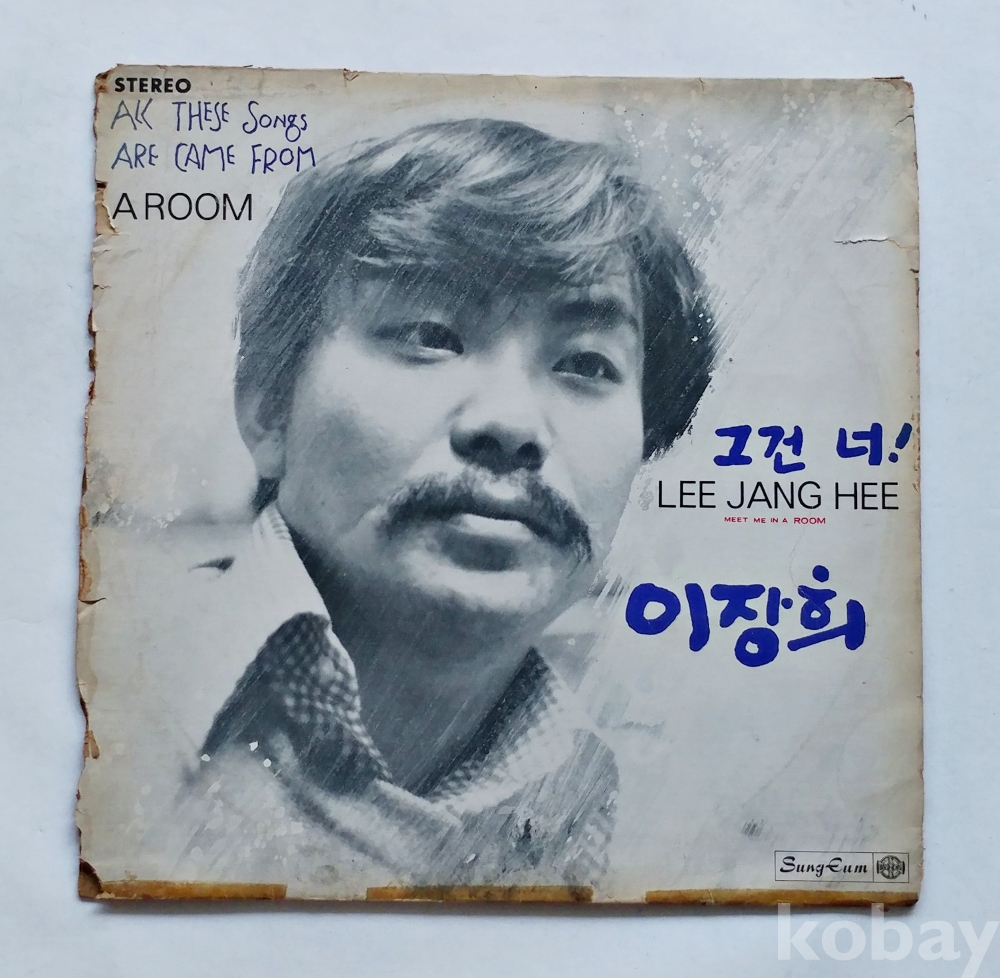 STEREO
All THESE Songs
ARE CAME FROM
A ROOM
그건 너!
LEE JANG HEE
MEET ME IN A ROOM
이장희
SungEum
kobay